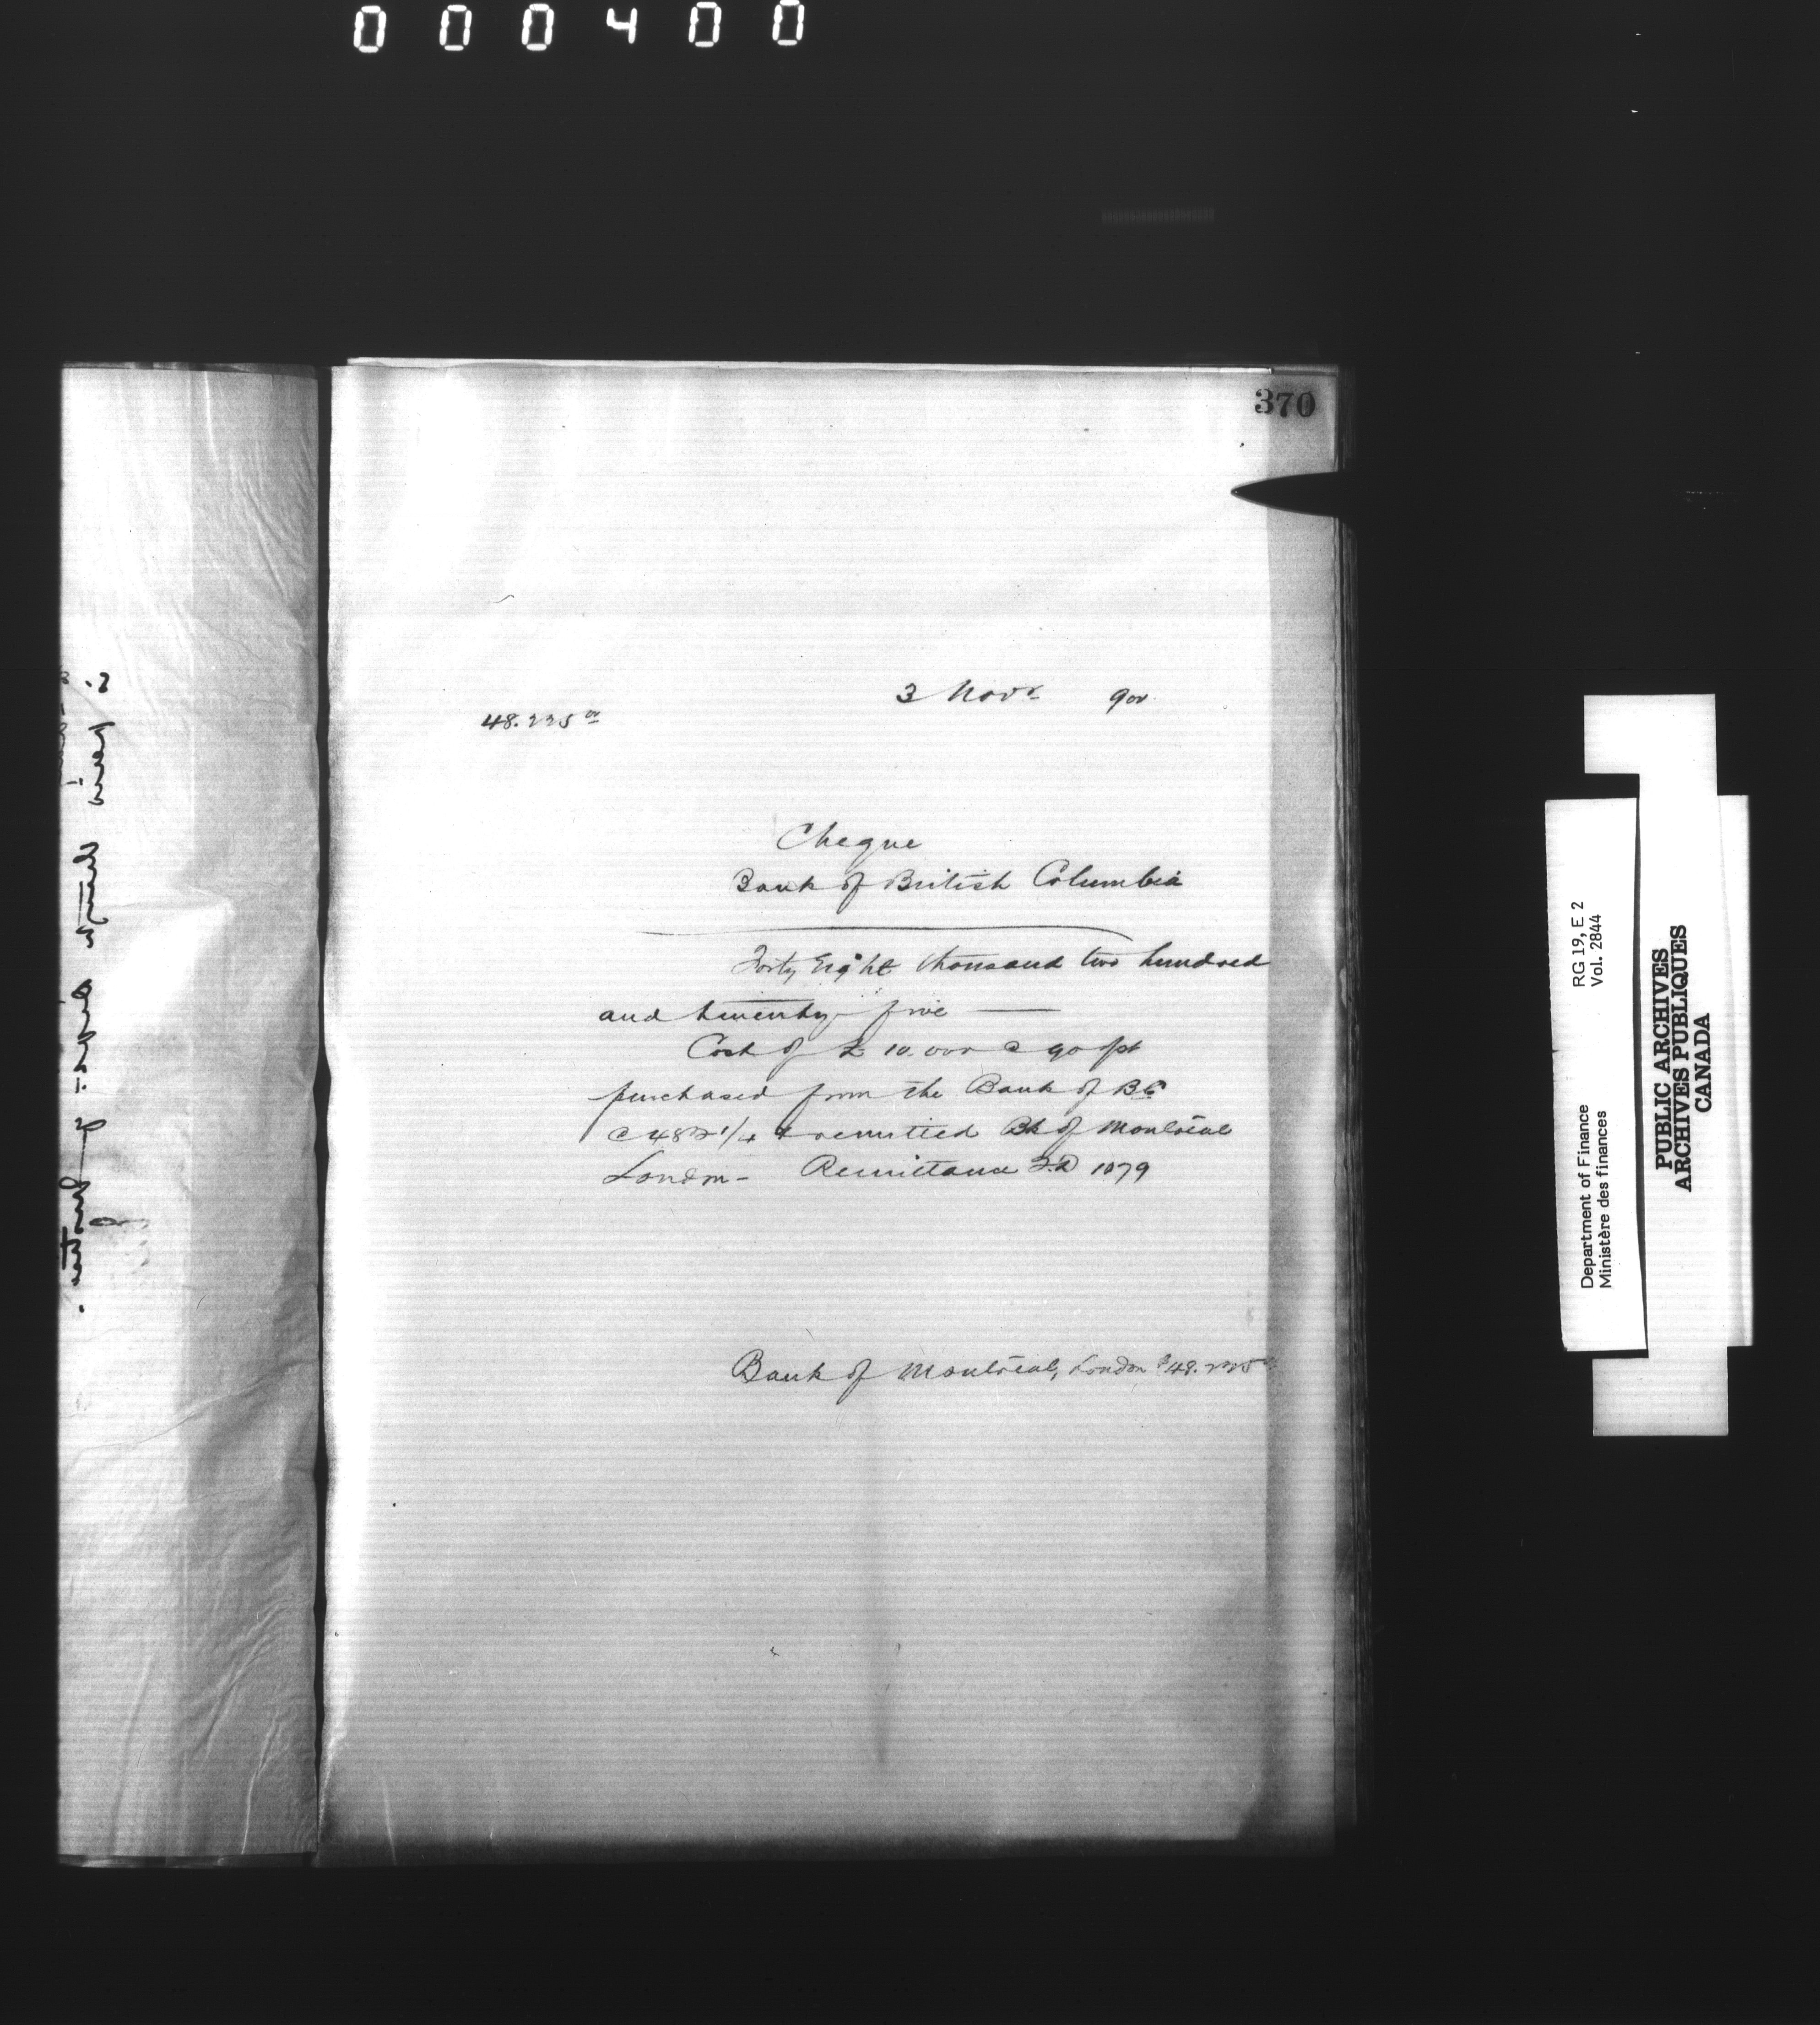 000400
370
3 Novr 900
48.225 00
Cheque
Bank of British Columbia
Forty Eight thousand two hundred
and twenty-five —
Cost of £ 10.000 @ 90
purchased from the Bank of BC
@ 482 1/4 & remitted Bk of Montreal
London - Remittance 1079
Bank of Montreal, London $48.225 00
Department of Finance RG 19, E 2
Ministère des finances Vol. 2844
PUBLIC ARCHIVES
ARCHIVES PUBLIQUES
CANADA